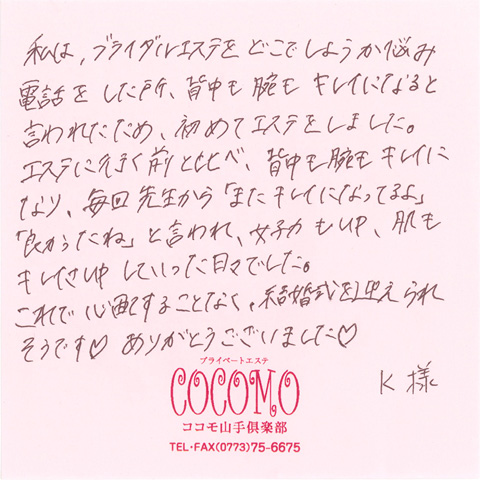 私は、ブライダルエステをどこでしようか悩み
電話をした所、背中も腕もキレイになると
言われたため、初めてエステをしました。
エステに行く前と比べ、背中も腕もキレイに
なり、毎回先生から「またキレイになってるよ」
「良かったね」と言われ、女子力もUP、肌も
キレイさUPしていった日々でした。
これで心配することなく、結婚式を迎えられ
そうです♡ ありがとうございました♡
K様
プライベートエステ
COCOMO
ココモ山手倶楽部
TEL・FAX(0773)75-6675